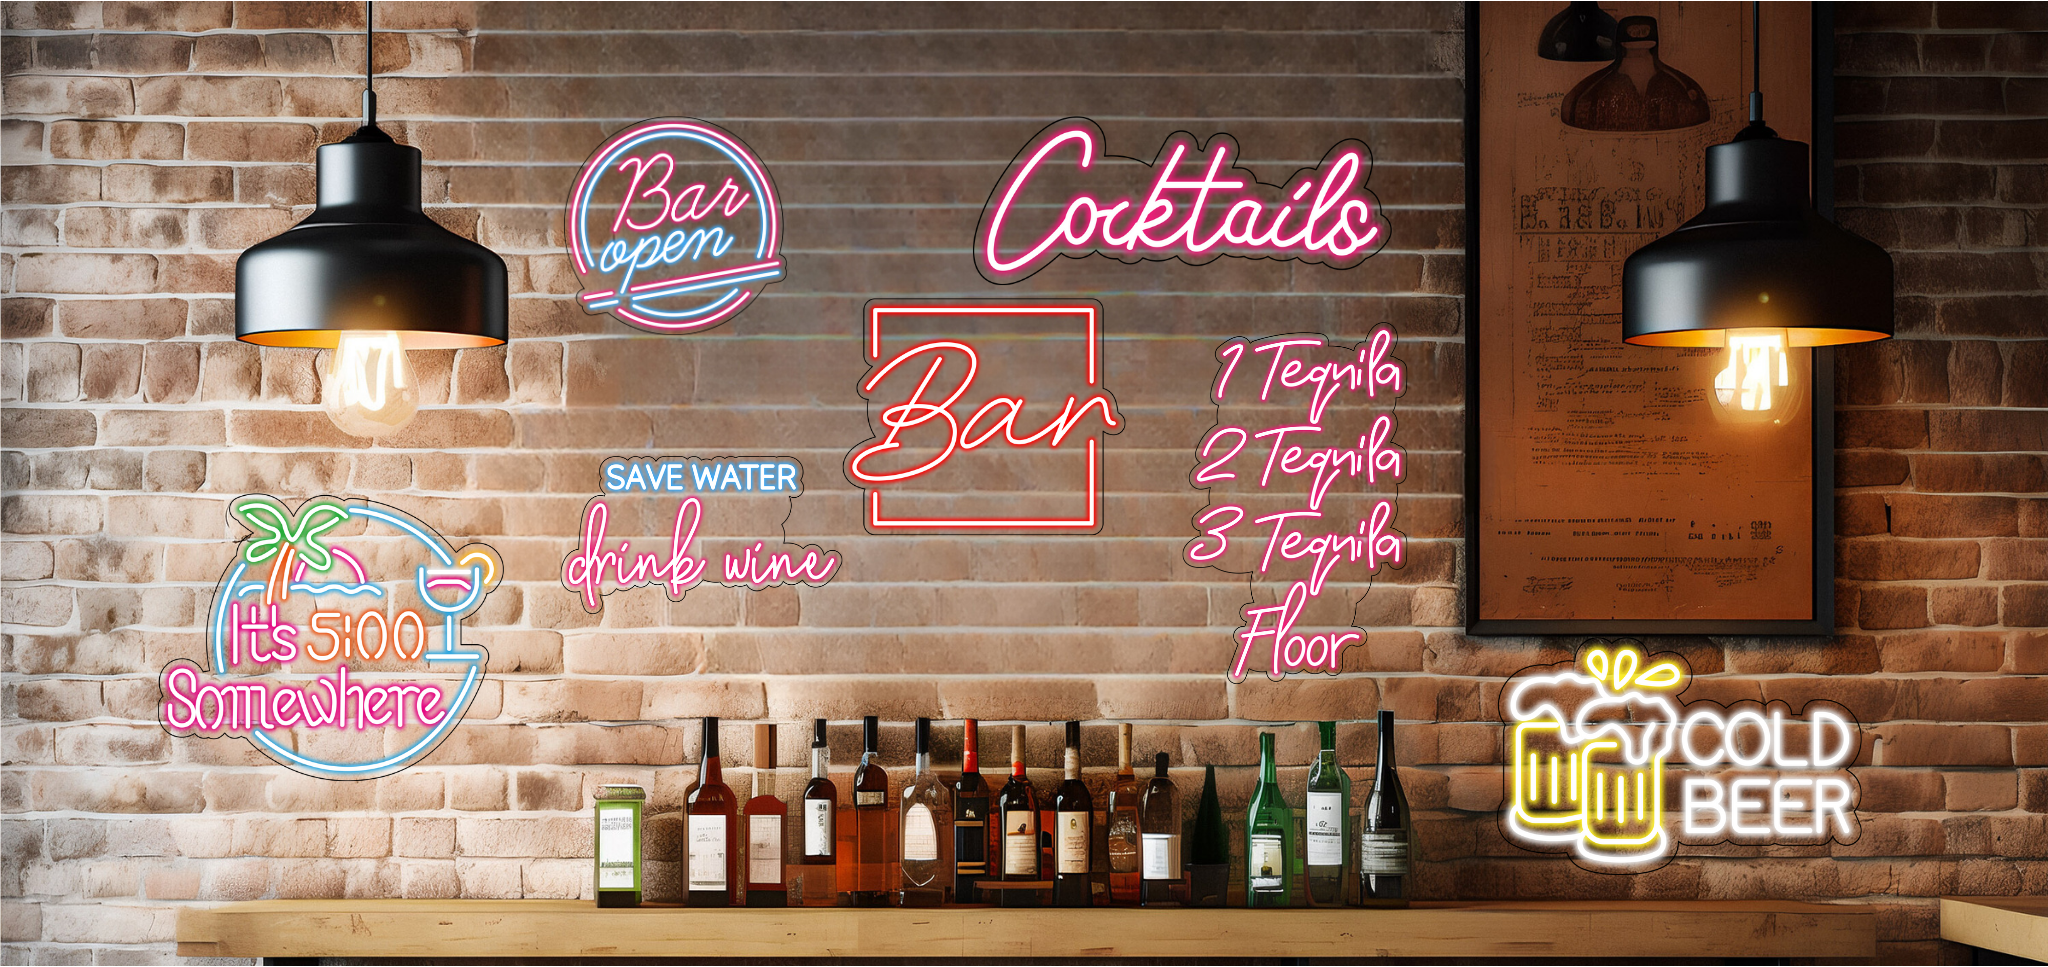 Bar
open
Cocktails
Bar
1 Tequila
2 Tequila
3 Tequila
Floor
SAVE WATER
drink wine
It's 5:00
Somewhere
COLD
BEER